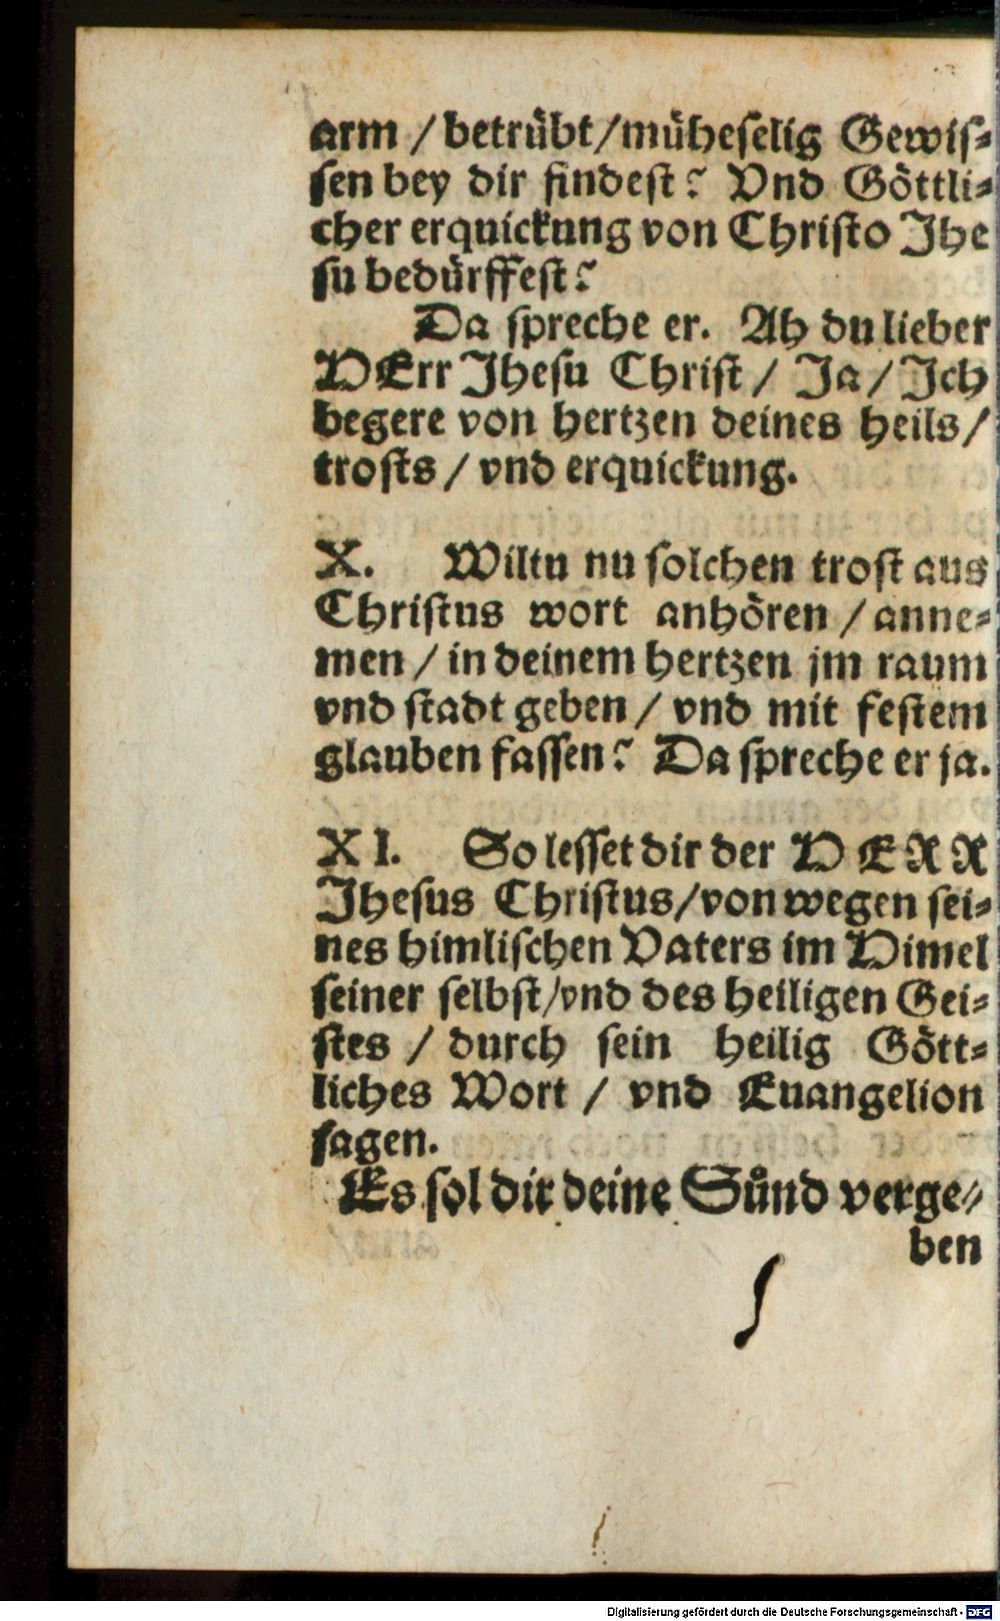 arm / betrübt/müheselig Gewis⸗
sen bey dir findest? Vnd Göttli⸗
cher erquickung von Christo Jhe
su bedürffest?
Da spreche er. Ah du lieber
HErr Jhesu Christ / Ja / Jch
begere von hertzen deines heils/
trosts / vnd erquickung.
X. Wiltu nu solchen trost aus
Christus wort anhören / anne⸗
men / in deinem hertzen jm raum
vnd stadt geben / vnd mit festem
glauben fassen? Da spreche er ja.
XI. So lesset dir der HERR
Jhesus Christus/von wegen sei⸗
nes himlischen Vaters im Himel
seiner selbst/vnd des heiligen Gei⸗
stes / durch sein heilig Gött⸗
liches Wort / vnd Euangelion
sagen.
Es sol dir deine Sünd verge⸗
ben
Digitalisierung gefördert durch die Deutsche Forschungsgemeinschaft - DFG